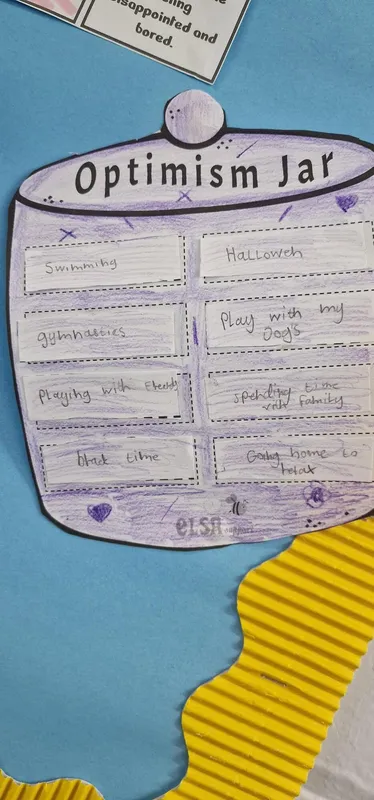 disappointed and
bored.
Optimism Jar
Swimming
Halloweh
gymnastics
Play with my
Dogs
Playing with
spending time
with family
time
Going home to
relax
elsa support